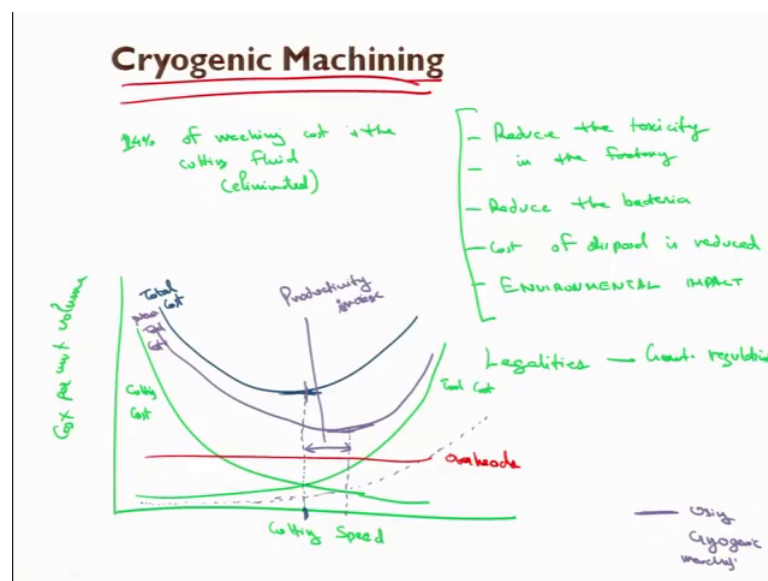 Cryogenic Machining
14% of machining cost is the
cutting fluid
(eliminated)
- Reduce the toxicity
- in the factory
- Reduce the bacteria
- Cost of disposal is reduced
- ENVIRONMENTAL IMPACT
Legalities — Govt. regulation
Cost per unit volume
Total
Cost
New
Total
Cost
Productivity
increase
Cutting
Cost
Tool Cost
Overheads
Cutting Speed
— Using
Cryogenic